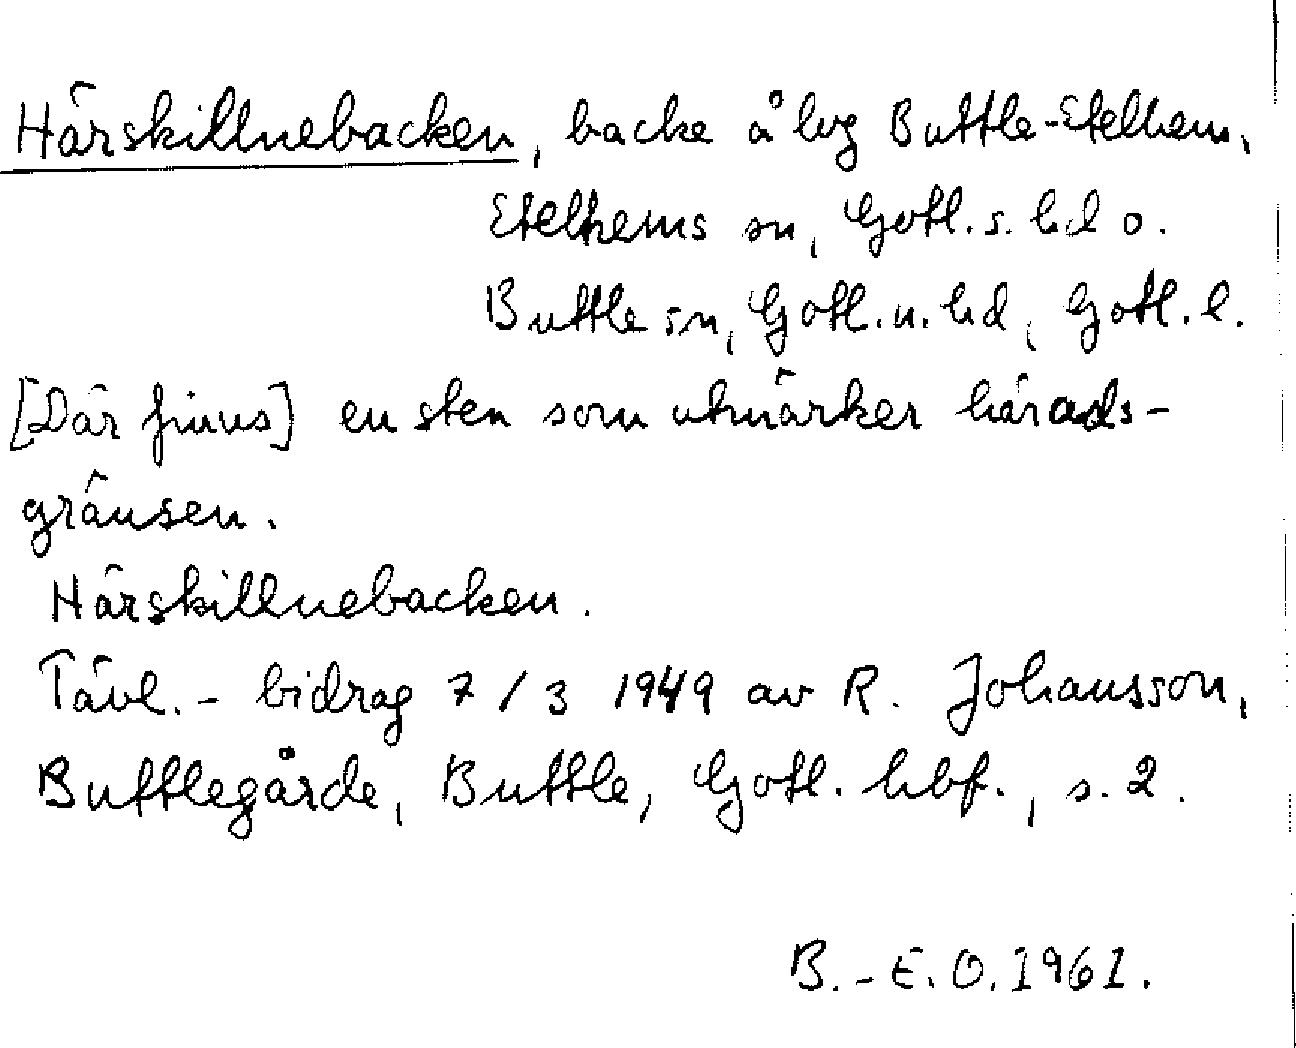 Härskillnebacken, backe å lvg Buttle-Etelhem,
Etelhems sn, Gotl. s. hd o.
Buttle sn, Gotl. n. hd, Gotl. l.
[Där finns] en sten som utmärker härads-
gränsen.
Härskillnebacken.
Tävl.- bidrag 7/3 1949 av R. Johansson,
Buttlegårde, Buttle, Gotl. hbf., s. 2.
B.-E. O. 1961.